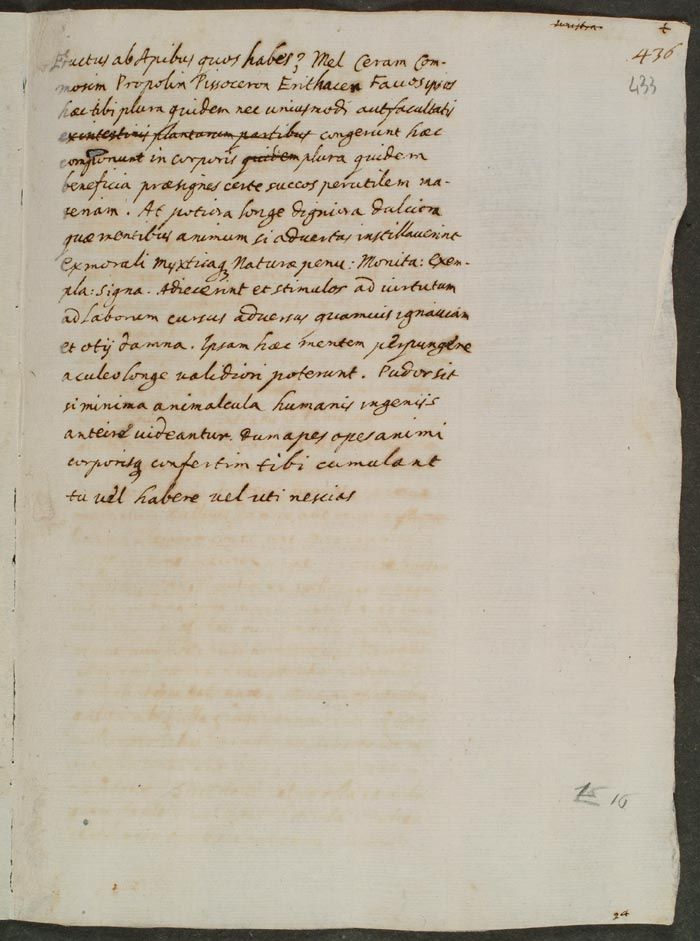 436
433
Fructus ab Apibus quos habes? Mel Ceram Com-
mosim Propolin Pissoceron Erithacen Favos ipsos
hæc tibi plura quidem nec unius modi aut facultati
ex intestinis plantarum partibus congerunt hæc
in corporis quidem plura quidem
beneficia præsignes certe succos perutilem ma-
teriam. At potiora longe digniora dulciora
quæ mentibus animum si advertas instillaverint
ex morali Myxticaq Naturæ penu: Monita: exem-
pla: signa. Adiecerint et stimulos ad virtutum
ad Laborum cursus adversus quamvis ignaviam
et otij damna. Ipsam hæc mentem perpungere
aculeo longe validiori poterunt. Pudor sit
si minima animalcula humanis ingeniis
anteire videantur. dum apes opes animi
corporisq confertim tibi cumulant
tu vel habere vel uti nescias
16
24